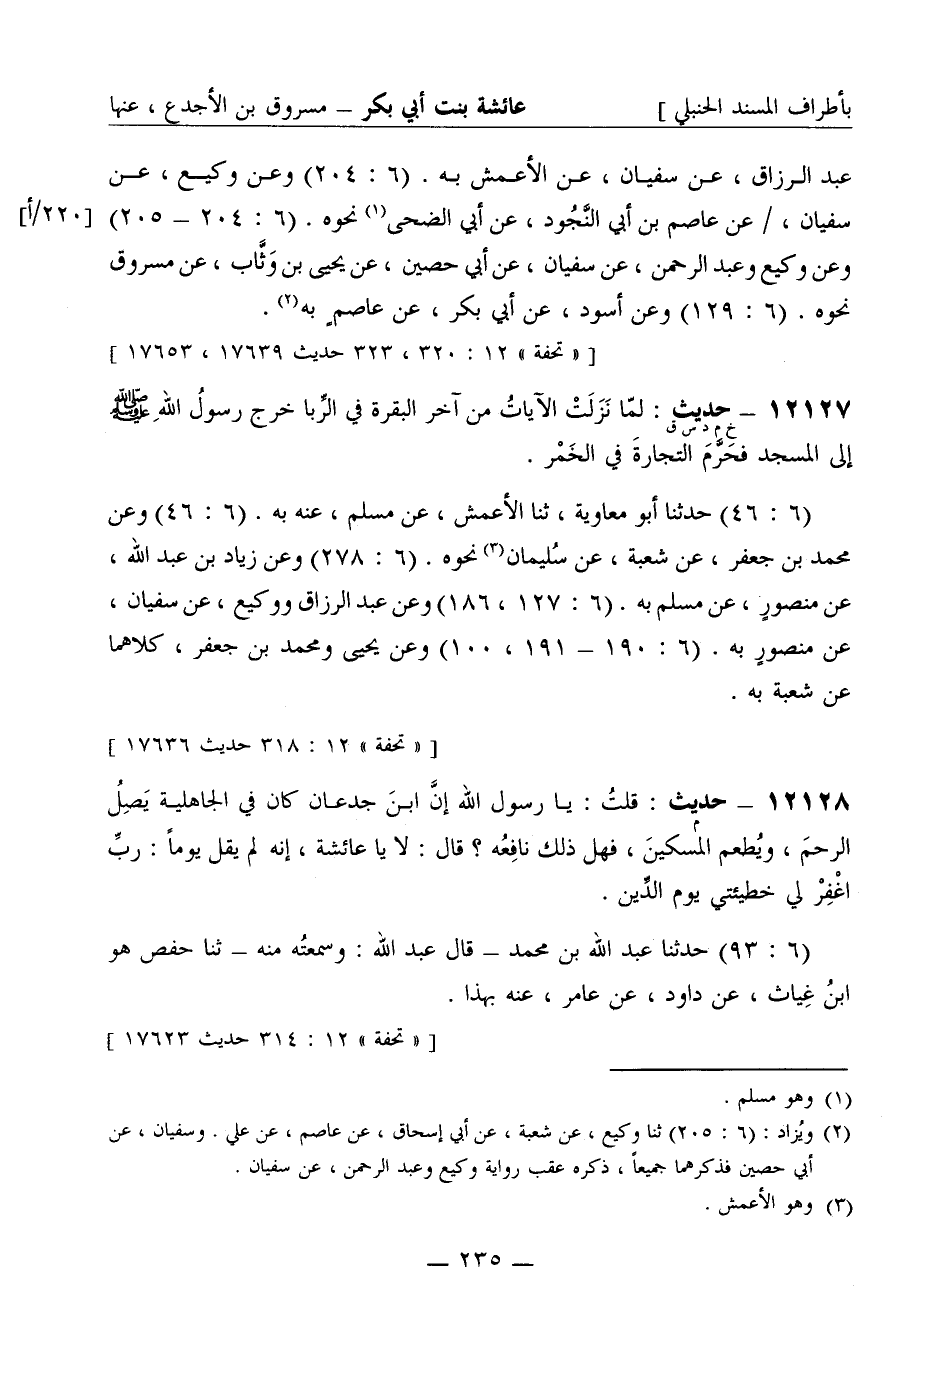 بأطراف المسند الحنبلي ] عائشة بنت أبي بكر ــ مسروق بن الأجدع ، عنها
عبد الرزاق ، عن سفيان ، عن الأعمش به . (٦ : ٢٠٤) وعن وكيع ، عن
سفيان ، / عن عاصم بن أبي النَّجُود ، عن أبي الضحى(١) نحوه . (٦ : ٢٠٤ ــ ٢٠٥) [٢٢٠/أ]
وعن وكيع وعبد الرحمن ، عن سفيان ، عن أبي حصين ، عن يحيى بن وَثَّاب ، عن مسروق
نحوه . (٦ : ١٢٩) وعن أسود ، عن أبي بكر ، عن عاصمٍ به(٢) .
[ « تحفة » ١٢ : ٣٢٠ ، ٣٢٣ حديث ١٧٦٣٩ ، ١٧٦٥٣ ]
١٢١٢٧ ــ حديث : لمّا نَزَلَتْ الآياتُ من آخر البقرة في الرِّبا خرج رسولُ اللهِ ﷺ
خ م د س ق
إلى المسجد فحَرَّمَ التجارةَ في الخَمْر .
(٦ : ٤٦) حدثنا أبو معاوية ، ثنا الأعمش ، عن مسلم ، عنه به . (٦ : ٤٦) وعن
محمد بن جعفر ، عن شعبة ، عن سُليمان(٣) نحوه . (٦ : ٢٧٨) وعن زياد بن عبد الله ،
عن منصورٍ ، عن مسلم به . (٦ : ١٢٧ ، ١٨٦) وعن عبد الرزاق ووكيع ، عن سفيان ،
عن منصورٍ به . (٦ : ١٩٠ ــ ١٩١ ، ١٠٠) وعن يحيى ومحمد بن جعفر ، كلاهما
عن شعبة به .
[ « تحفة » ١٢ : ٣١٨ حديث ١٧٦٣٦ ]
١٢١٢٨ ــ حديث : قلتُ : يا رسول الله إنَّ ابنَ جدعان كان في الجاهلية يَصِلُ
م
الرحمَ ، ويُطعم المسكينَ ، فهل ذلك نافِعُه ؟ قال : لا يا عائشة ، إنه لم يقل يوماً : ربِّ
اغْفِرْ لي خطيئتي يوم الدِّين .
(٦ : ٩٣) حدثنا عبد الله بن محمد ــ قال عبد الله : وسمعتُه منه ــ ثنا حفص هو
ابنُ غِياث ، عن داود ، عن عامر ، عنه بهذا .
[ « تحفة » ١٢ : ٣١٤ حديث ١٧٦٢٣ ]
(١) وهو مسلم .
(٢) ويُزاد : (٦ : ٢٠٥) ثنا وكيع ، عن شعبة ، عن أبي إسحاق ، عن عاصم ، عن علي . وسفيان ، عن
أبي حصين فذكرهما جميعاً ، ذكره عقب رواية وكيع وعبد الرحمن ، عن سفيان .
(٣) وهو الأعمش .
ــ ٢٣٥ ــ